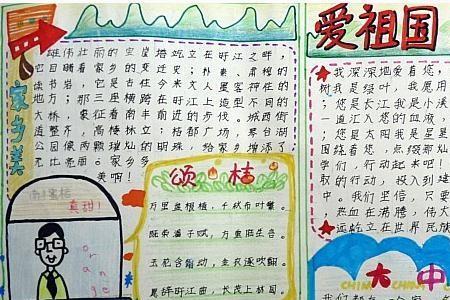 家乡美
雄伟壮丽的宝塔屹立在盱江之畔，
它目睹着家乡的变迁史；朴素、肃穆的
读书岩，它是古往今来文人墨客神往的
地方；那三座横跨在盱江上造型不同的
大桥，象征着南丰前进的步伐。城西街
道整齐，高楼林立；桔都广场、琴台湖
公园像两颗璀灿的明珠，给家乡增添了
无比亮丽。家乡多
美啊！
南丰蜜桔
真甜！
orange
颂桔
万里盖根植，千秋布叶繁。
旺荣潘子赋，方重陆生言。
玉花含霜动，金
逐吹翻。
盱江曲，长茂上林园。
爱祖国
我深深地爱着您，
树我是绿叶，我愿用
；您是长江我是小溪
一道汇入您的血液，
；您是太阳我是星星
围绕着您，点缀那灿
学们，行动起来吧！
取的行动，投入到建
中。我们坚信，只要
，热血在沸腾，伟大
远屹立在世界民族
CHINA CHINA
大中